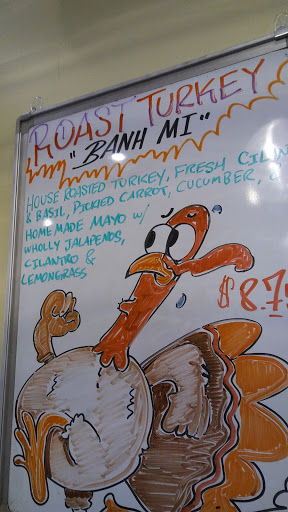 ROAST TURKEY
"BANH MI"
HOUSE ROASTED TURKEY, FRESH
& BASIL, PICKLED CARROT, CUCUMBER,
HOMEMADE MAYO w/
WHOLLY JALAPENOS,
CILANTRO &
LEMONGRASS
$8.7